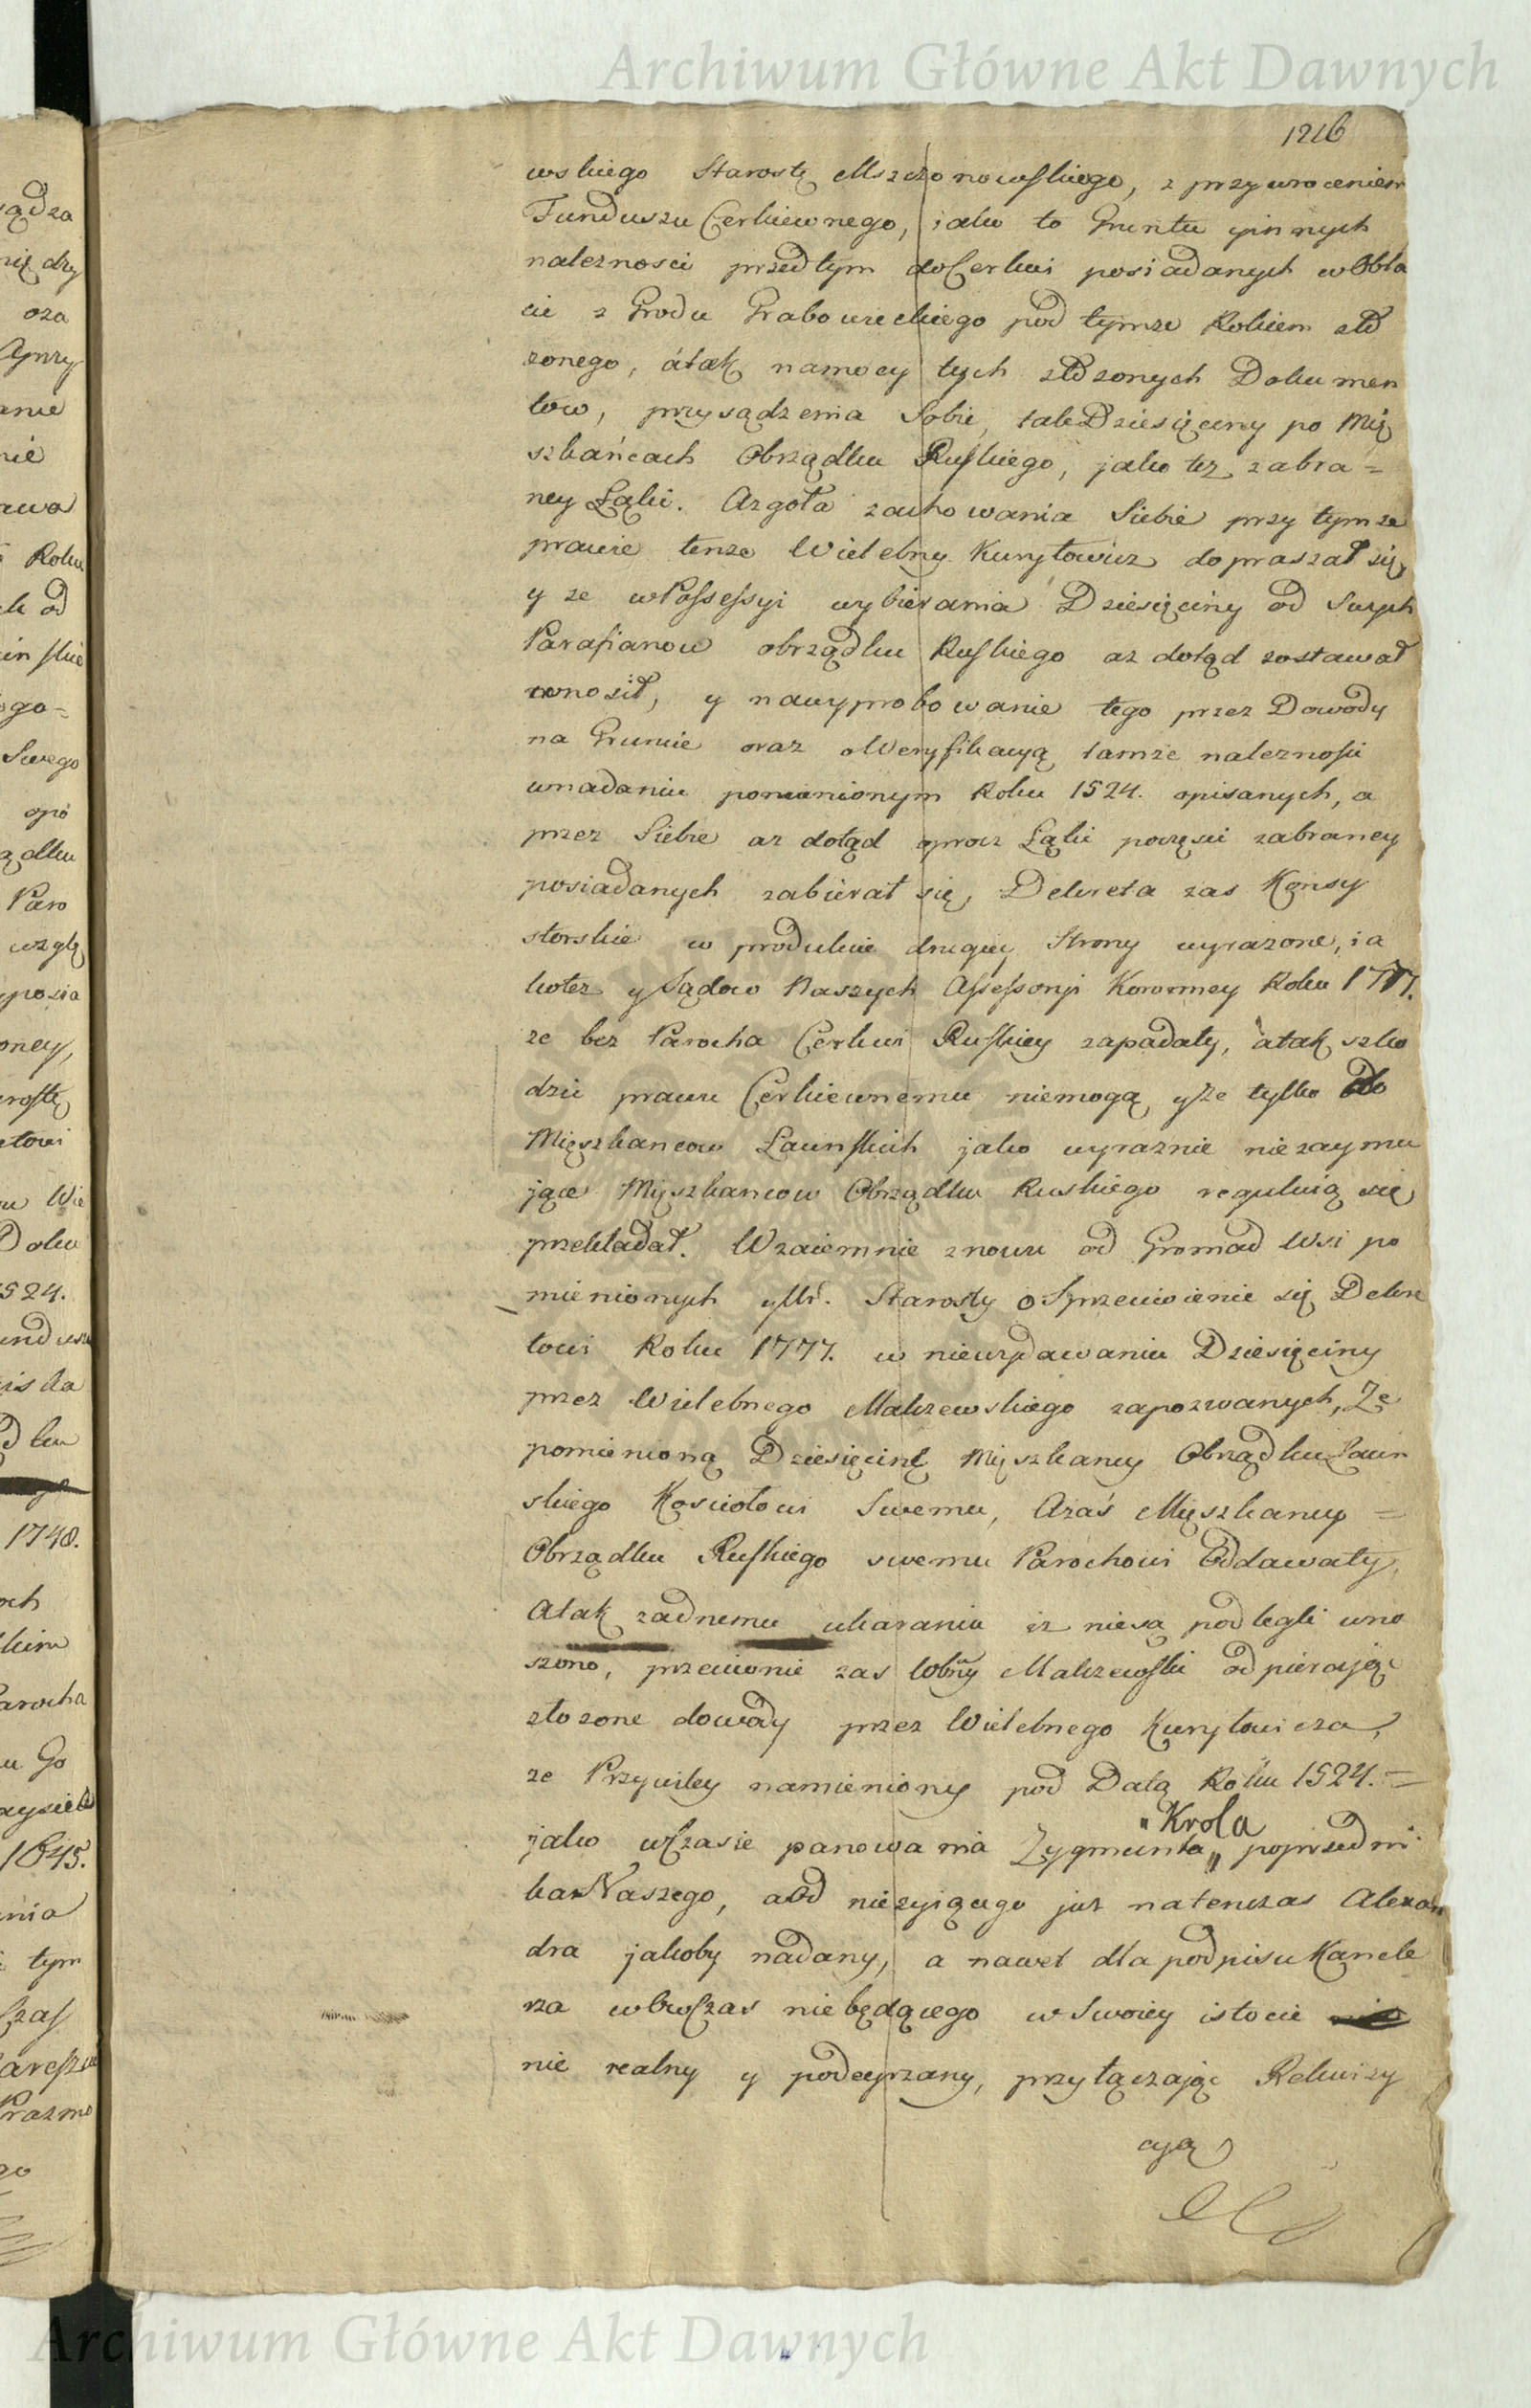 Archiwum Główne Akt Dawnych
1216
wskiego Starostę Mszczonowskiego, z przywroceniem
Funduszu Cerkiewnego, iako to Gruntu yinnych
naleznosci przedtym doCerkwi posiadanych wObla
cie z Grodu Grabowieckiego pod tymze Rokiem zło
zonego, átak namocy tych złozonych Dokumen
tow, przysądzenia Sobie, takDziesięciny po Mię
szkańcach Obrządku Ruskiego, jako tez zabra=
ney Łąki. Azgoła zachowania Siebie przy tymze
prawie tenze Wielebny Kuryłowicz dopraszał się,
y ze wPossessyi wybierania Dziesięciny od Swych
Parafianow obrządku Ruskiego az dotąd zostawał
wnosił, y nawyprobowanie tego przez Dowody
na Gruncie oraz oWeryfikacyą tamze naleznosci
wnadaniu pomienionym Roku 1524. opisanych, a
przez Siebie az dotąd oprocz Łąki poczęsci zabraney
posiadanych zabierał się, Dekreta zas Konsy
storskie w produkcie drugiey Strony wyrazone, ia
kotez y Sądow Naszych Assessoryi Koronney Roku 1777.
ze bez Parocha Cerkwi Ruskiey zapadały, átak szko
dzic prawu Cerkiewnemu niemogą yze tylko do
Mięszkancow Łacinskich jako wyraznie niezaymu
jące Mięszkancow Obrządku Ruskiego regulują się
przekładał. Wzaiemnie znowu od Gromad Wsi po
mienionych yUr. Starosty oSprzeciwienie się Dekre
towi Roku 1777. w niewydawaniu Dziesięciny
przez Wielebnego Malczewskiego zapozwanych, Ze
pomienioną Dziesięcinę Mięszkancy Obrządku Łacin
skiego Kosciołowi Swemu, Azaś Mięszkancy =
Obrządku Ruskiego swemu Parochowi Oddawały,
Atak zadnemu ukaraniu iz niesą podlegli wno
szono, przeciwnie zas Wbny Malczewski odpierając
złozone dowody przez Wielebnego Kuryłowicza,
ze Przywiley namieniony pod Datą Roku 1524.=
jako wCzasie panowania Zygmunta „ "Krola poprzedni
kaNaszego, aOd niezyiącego juz natenczas Alexan
dra jakoby nadany, a nawet dla podpisu Kancle
rza wowCzas niebędącego w Swoiey istocie
nie realny y podeyrzany, przyłączając Rekwizy
cyą
Archiwum Główne Akt Dawnych